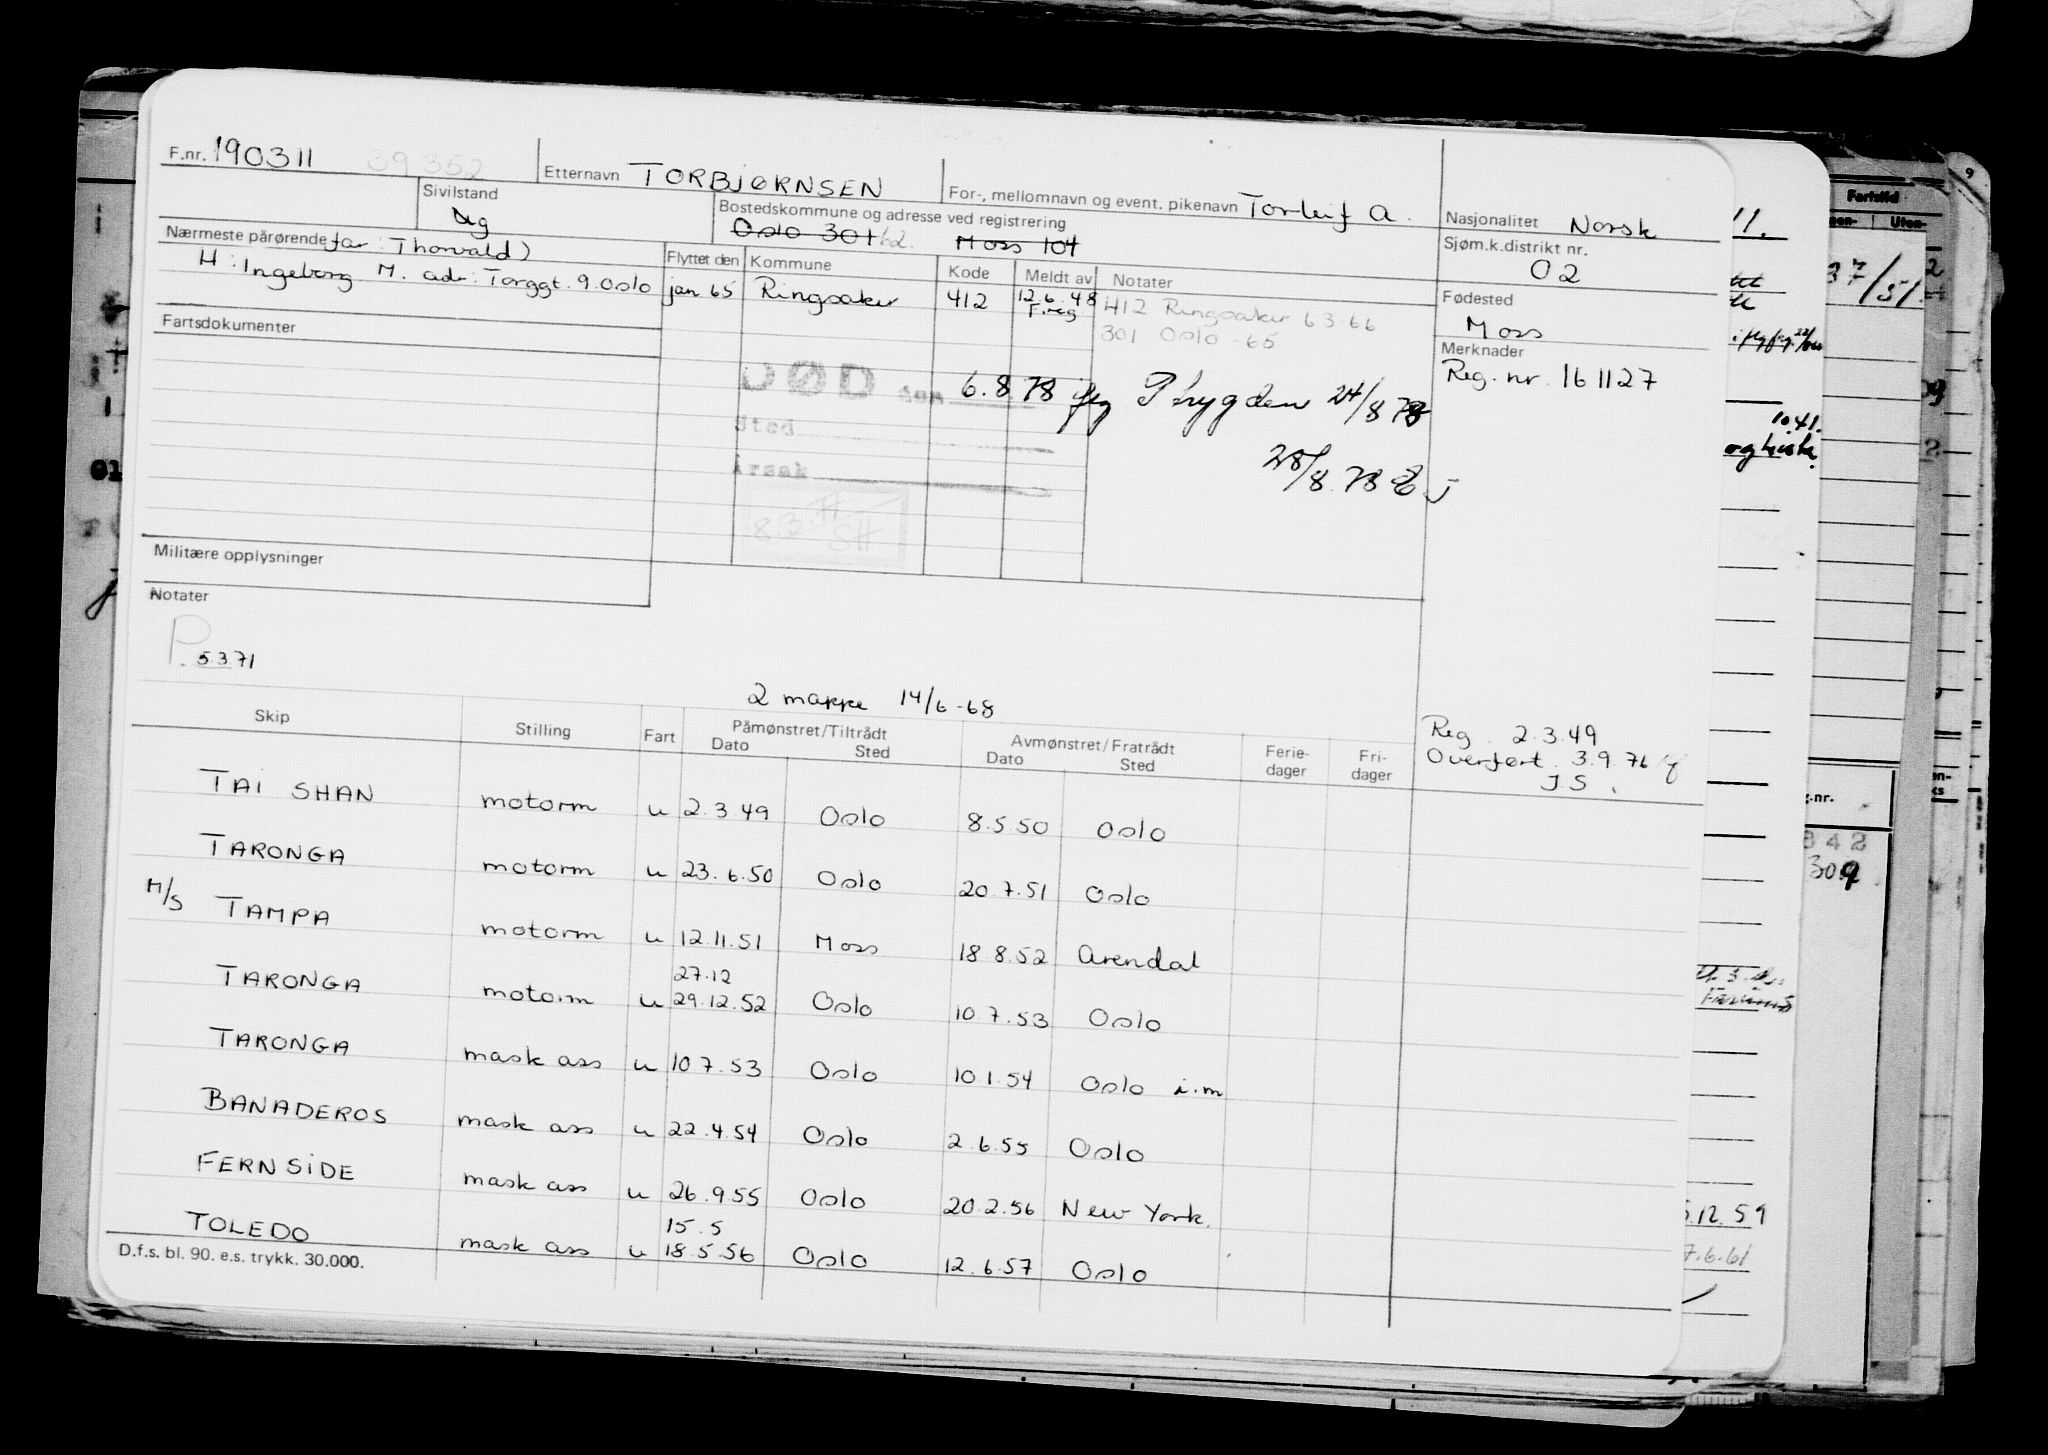 F.nr. 190311 39352 Etternavn TORBJØRNSEN For-, mellomnavn og event. pikenavn Torleif A. Nasjonalitet Norsk
Sivilstand Bostedskommune og adresse ved registrering Sjøm.k.distrikt nr.
Ug Oslo 301 Moss 104 02
Nærmeste pårørende far: Thorvald) Flyttet den Kommune Kode Meldt av Notater Fødested
H: Ingeborg M. adr: Torggt. 9. Oslo jan 65 Ringsaker 412 12.6.48 412 Ringsaker 63 66 Moss
F.reg 301 Oslo -65
Fartsdokumenter Merknader
Reg. nr. 161127
DØD den 6.8.78 Trygden 24/8 78
Sted
28/8.78
Årsak
8.3. SH
Militære opplysninger
Notater
P. 5.3.71
2 mappe 14/6-68
Skip Stilling Fart Påmønstret/Tiltrådt Avmønstret/Fratrådt Ferie- Fri- Reg. 2.3.49
Dato Sted Dato Sted dager dager Overført. 3.9.76
J.S.
TAI SHAN motorm u 2.3.49 Oslo 8.5.50 Oslo
TARONGA motorm u 23.6.50 Oslo 20.7.51 Oslo
M/S TAMPA motorm u 12.11.51 Moss 18.8.52 Arendal
27.12
TARONGA motorm u 29.12.52 Oslo 10.7.53 Oslo
TARONGA mask ass u 10.7.53 Oslo 10.1.54 Oslo i.m
BANADEROS mask ass u 22.4.54 Oslo 2.6.55 Oslo
FERNSIDE mask ass u 26.9.55 Oslo 20.2.56 New York.
15.5
TOLEDO mask ass u 18.5.56 Oslo 12.6.57 Oslo
D.f.s. bl. 90. e.s. trykk. 30.000.
Fartstid
Uten-
37/51
10.41.
og kusk.
g.nr.
342
309
.12.59
7.6.61
9